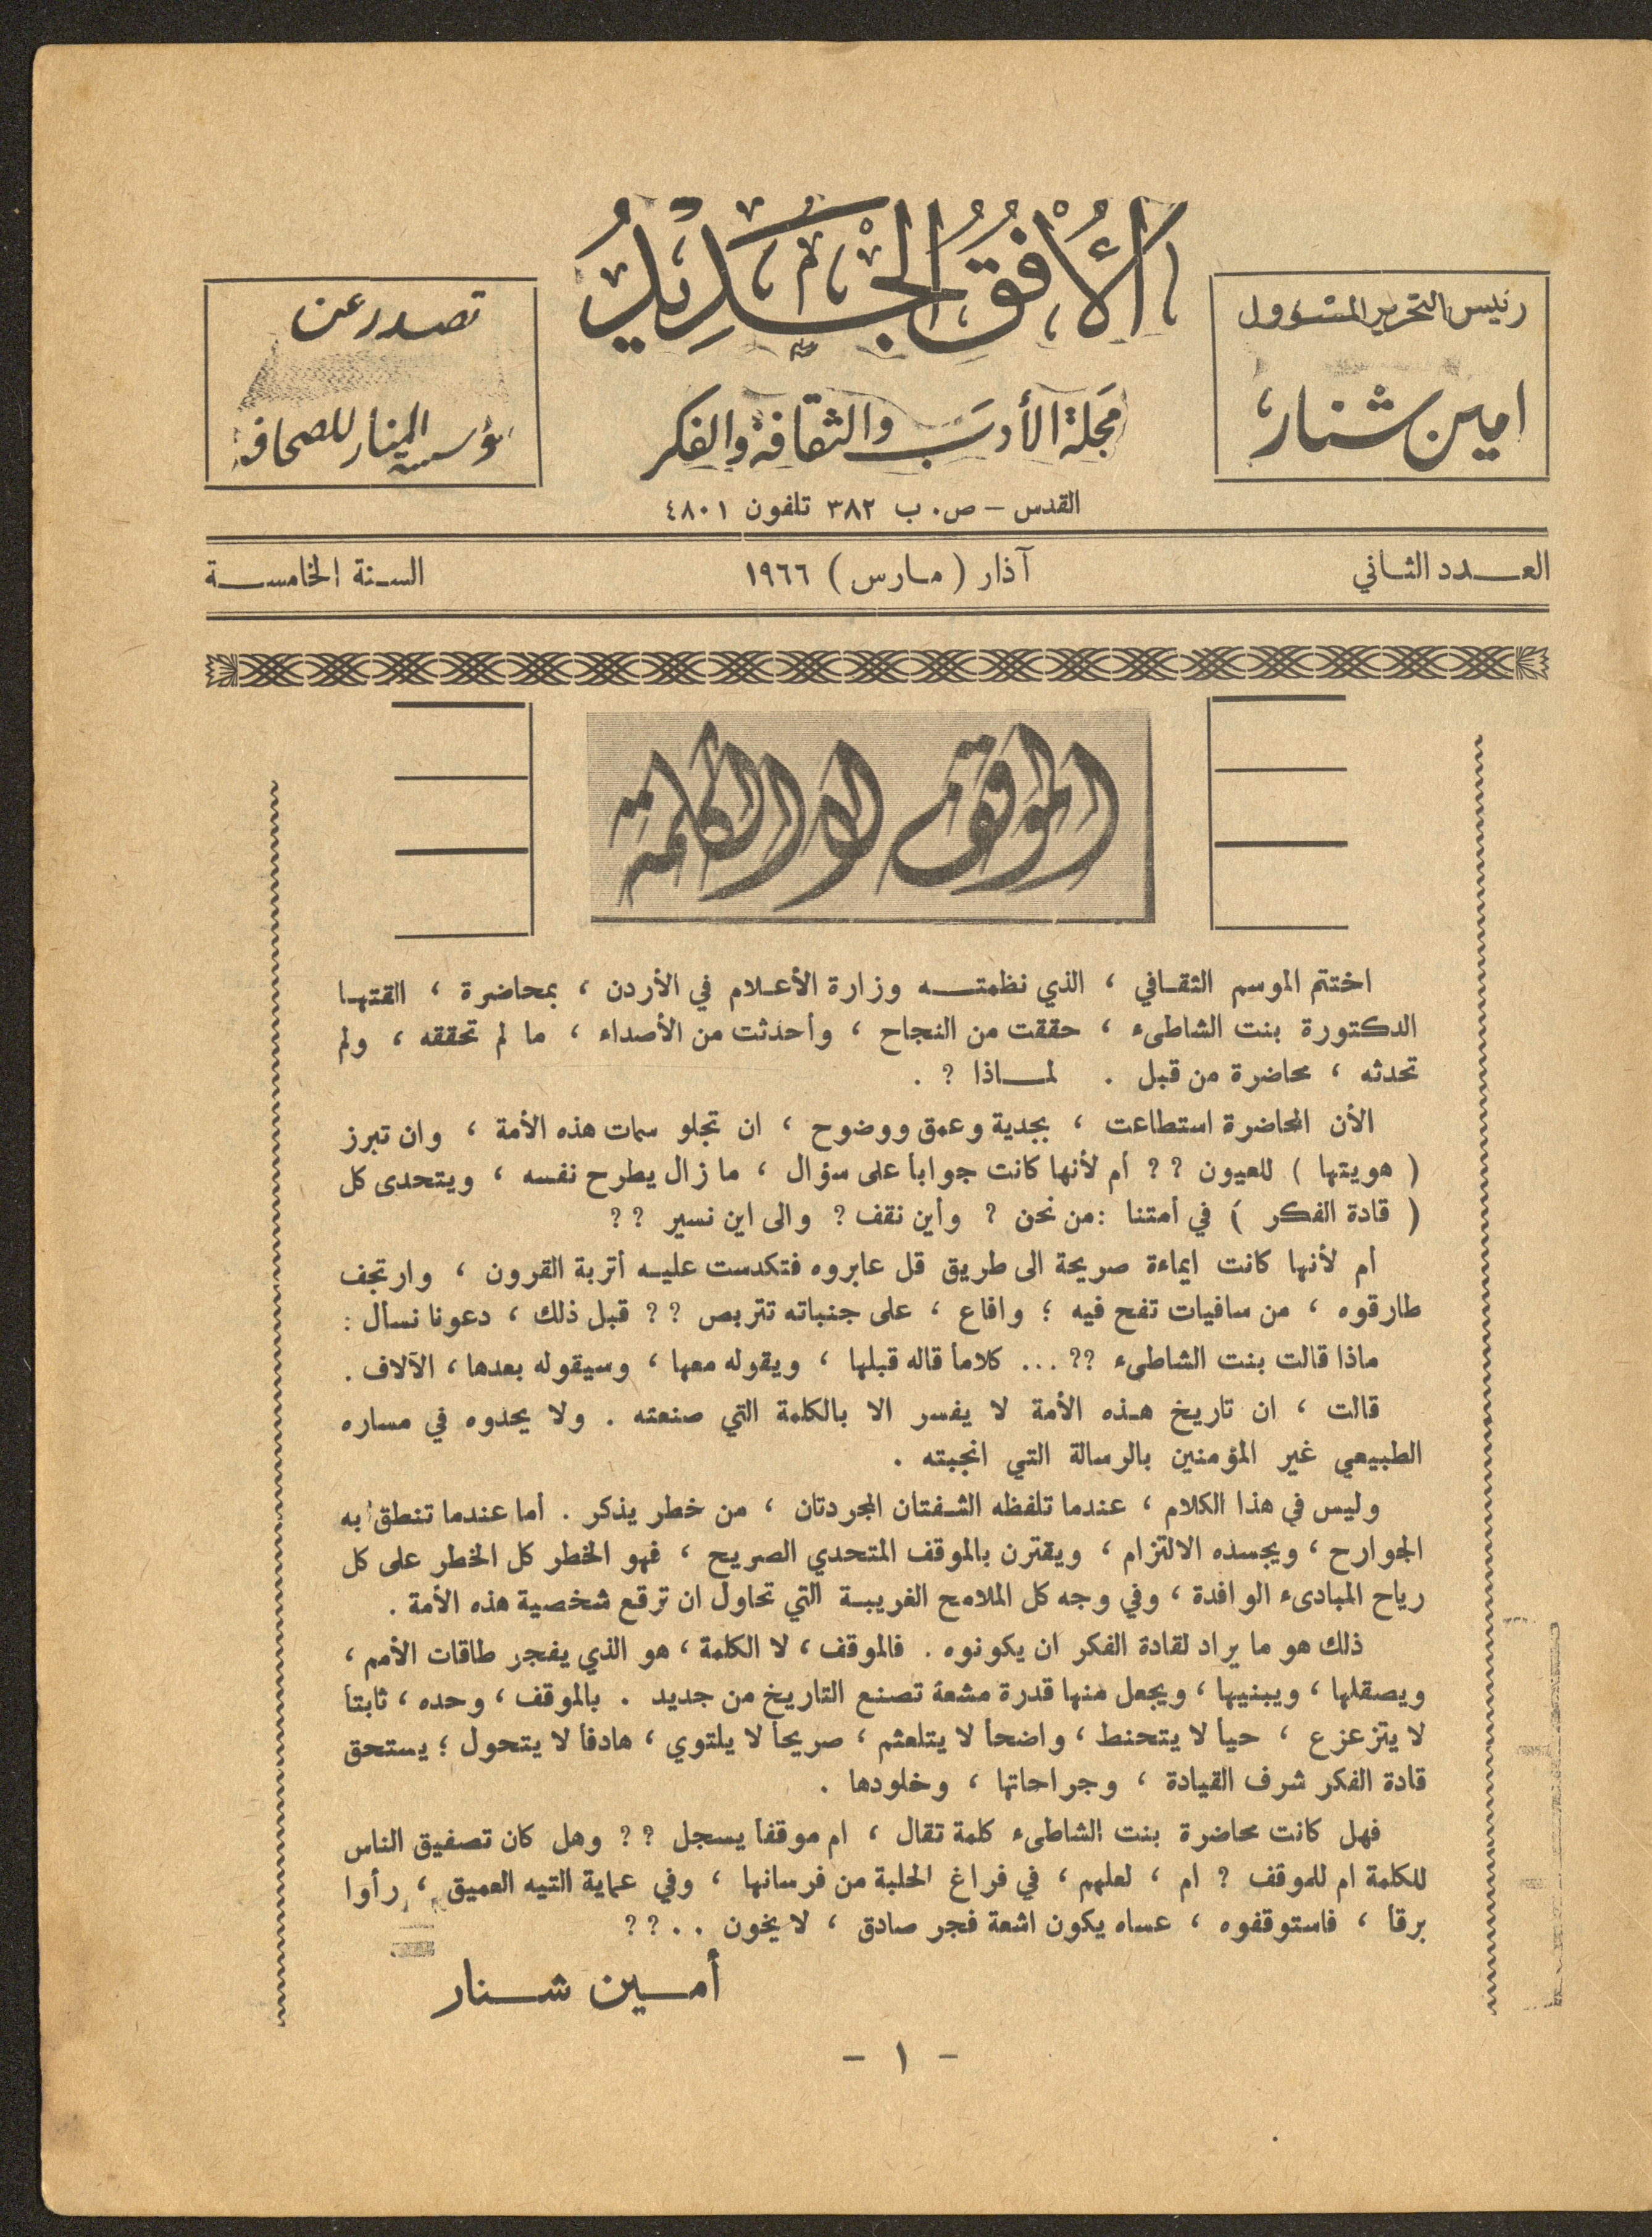 رئيس التحرير المسؤول
امين شنار
الأُفُقُ الجَدِيدُ
مجلة الأدب والثقافة والفكر
القدس – ص. ب ٣٨٢ تلفون ٤٨٠١
تصدر عن
مؤسسة المنار للصحافة
العدد الثاني
آذار (مارس) ١٩٦٦
السنة الخامسة
الموقف لا الكلمة
اختتم الموسم الثقافي ، الذي نظمته وزارة الأعلام في الأردن ، بمحاضرة ، القتها
الدكتورة بنت الشاطىء ، حققت من النجاح ، وأحدثت من الأصداء ، ما لم تحققه ، ولم
تحدثه ، محاضرة من قبل . لماذا ؟ .
الأن المحاضرة استطاعت ، بجدية وعمق ووضوح ، ان تجلو سمات هذه الأمة ، وان تبرز
( هويتها ) للعيون ؟ ؟ أم لأنها كانت جواباً على سؤال ، ما زال يطرح نفسه ، ويتحدى كل
( قادة الفكر ) في أمتنا : من نحن ؟ وأين نقف ؟ والى اين نسير ؟ ؟
ام لأنها كانت ايماءة صريحة الى طريق قل عابروه فتكدست عليه أتربة القرون ، وارتجف
طارقوه ، من سافيات تفح فيه ؛ وافاع ، على جنباته تتربص ؟ ؟ قبل ذلك ، دعونا نسأل :
ماذا قالت بنت الشاطىء ؟؟ ... كلاماً قاله قبلها ، ويقوله معها ، وسيقوله بعدها ، الآلاف .
قالت ، ان تاريخ هذه الأمة لا يفسر الا بالكلمة التي صنعته . ولا يحدوه في مساره
الطبيعي غير المؤمنين بالرسالة التي انجبته .
وليس في هذا الكلام ، عندما تلفظه الشفتان المجردتان ، من خطر يذكر . أما عندما تنطق به
الجوارح ، ويجسده الالتزام ، ويقترن بالموقف المتحدي الصريح ، فهو الخطر كل الخطر على كل
رياح المبادىء الوافدة ، وفي وجه كل الملامح الغريبة التي تحاول ان ترقع شخصية هذه الأمة .
ذلك هو ما يراد لقادة الفكر ان يكونوه . فالموقف ، لا الكلمة ، هو الذي يفجر طاقات الأمم ،
ويصقلها ، ويبنيها ، ويجعل منها قدرة مشعة تصنع التاريخ من جديد . بالموقف ، وحده ، ثابتاً
لا يتزعزع ، حياً لا يتحنط ، واضحاً لا يتلعثم ، صريحاً لا يلتوي ، هادفاً لا يتحول ؛ يستحق
قادة الفكر شرف القيادة ، وجراحاتها ، وخلودها .
فهل كانت محاضرة بنت الشاطىء كلمة تقال ، ام موقفاً يسجل ؟ ؟ وهل كان تصفيق الناس
للكلمة ام للموقف ؟ ام ، لعلهم ، في فراغ الحلبة من فرسانها ، وفي عماية التيه العميق ، رأوا
برقاً ، فاستوقفوه ، عساه يكون اشعة فجر صادق ، لا يخون . . ؟ ؟
أمين شنار
– ١ –